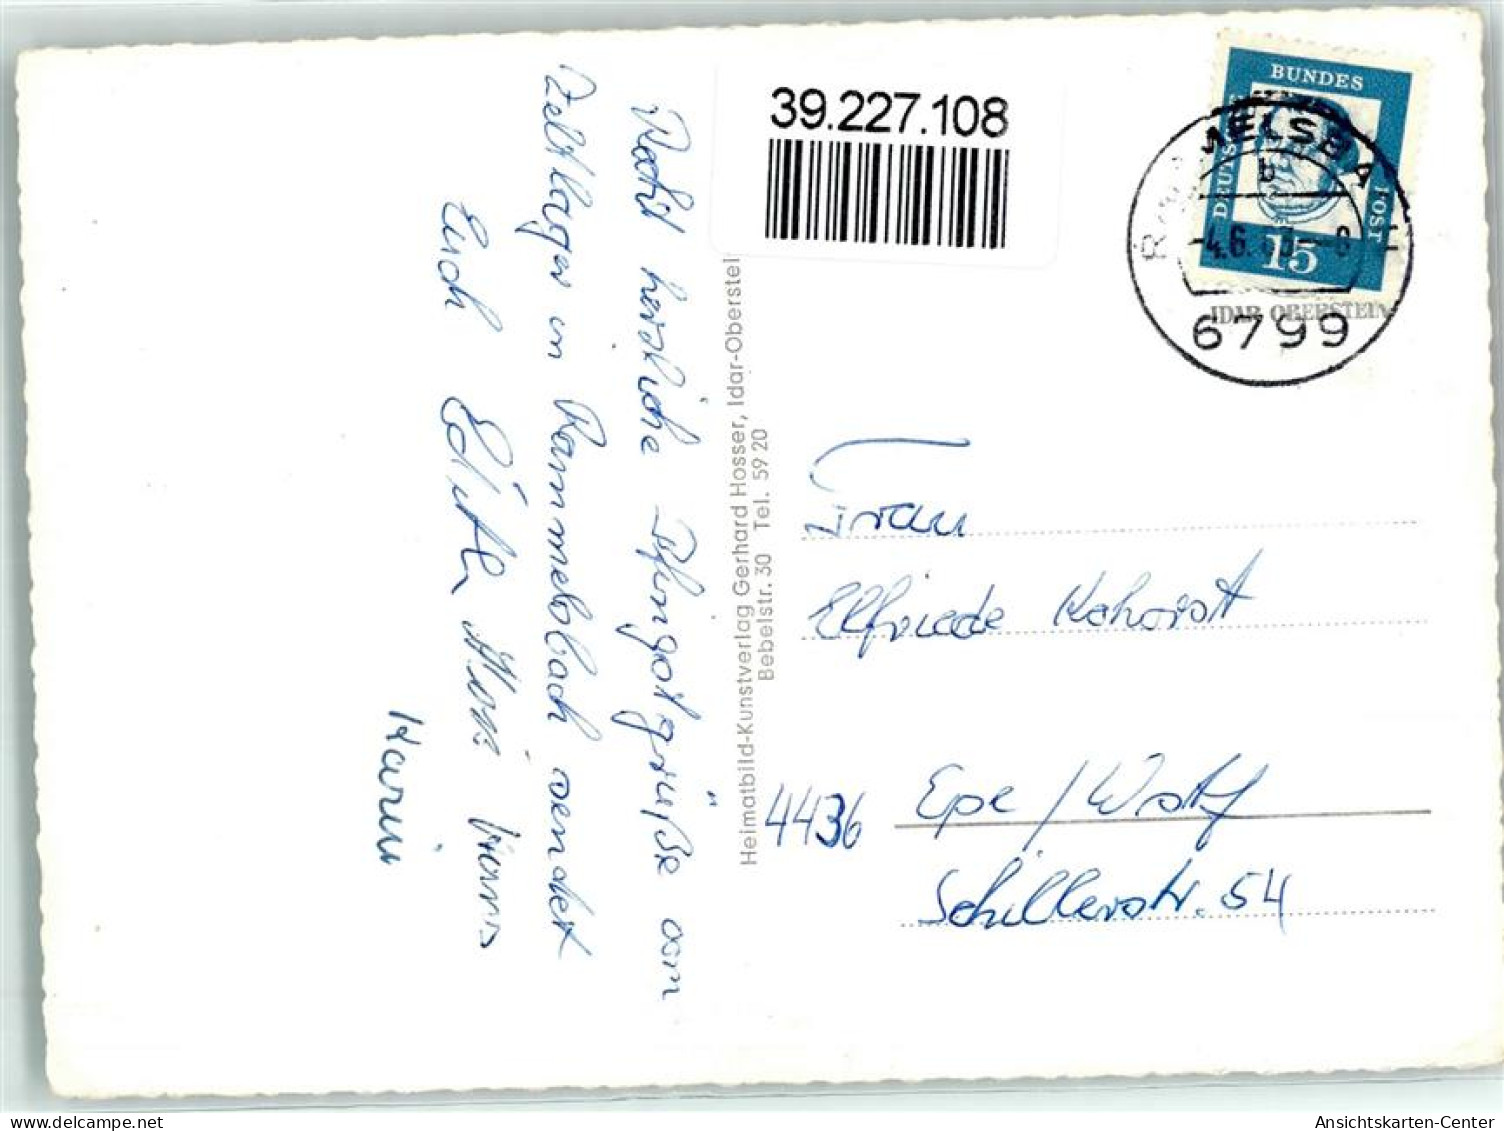 39.227.108
BUNDES
DEUTSCHE
POST
15
RAMMELSBACH
b
-4.6.63-8
6799
IDAR-OBERSTEIN
Recht herzliche Pfingstgrüße vom
Zeltlager in Rammelsbach sendet
Euch Edith
Karin
Heimatbild-Kunstverlag Gerhard Hosser, Idar-Oberstei
Bebelstr. 30 Tel. 59 20
Frau
Elfriede Kohorst
4436 Epe / Westf
Schillerstr. 54
Ansichtskarten-Center